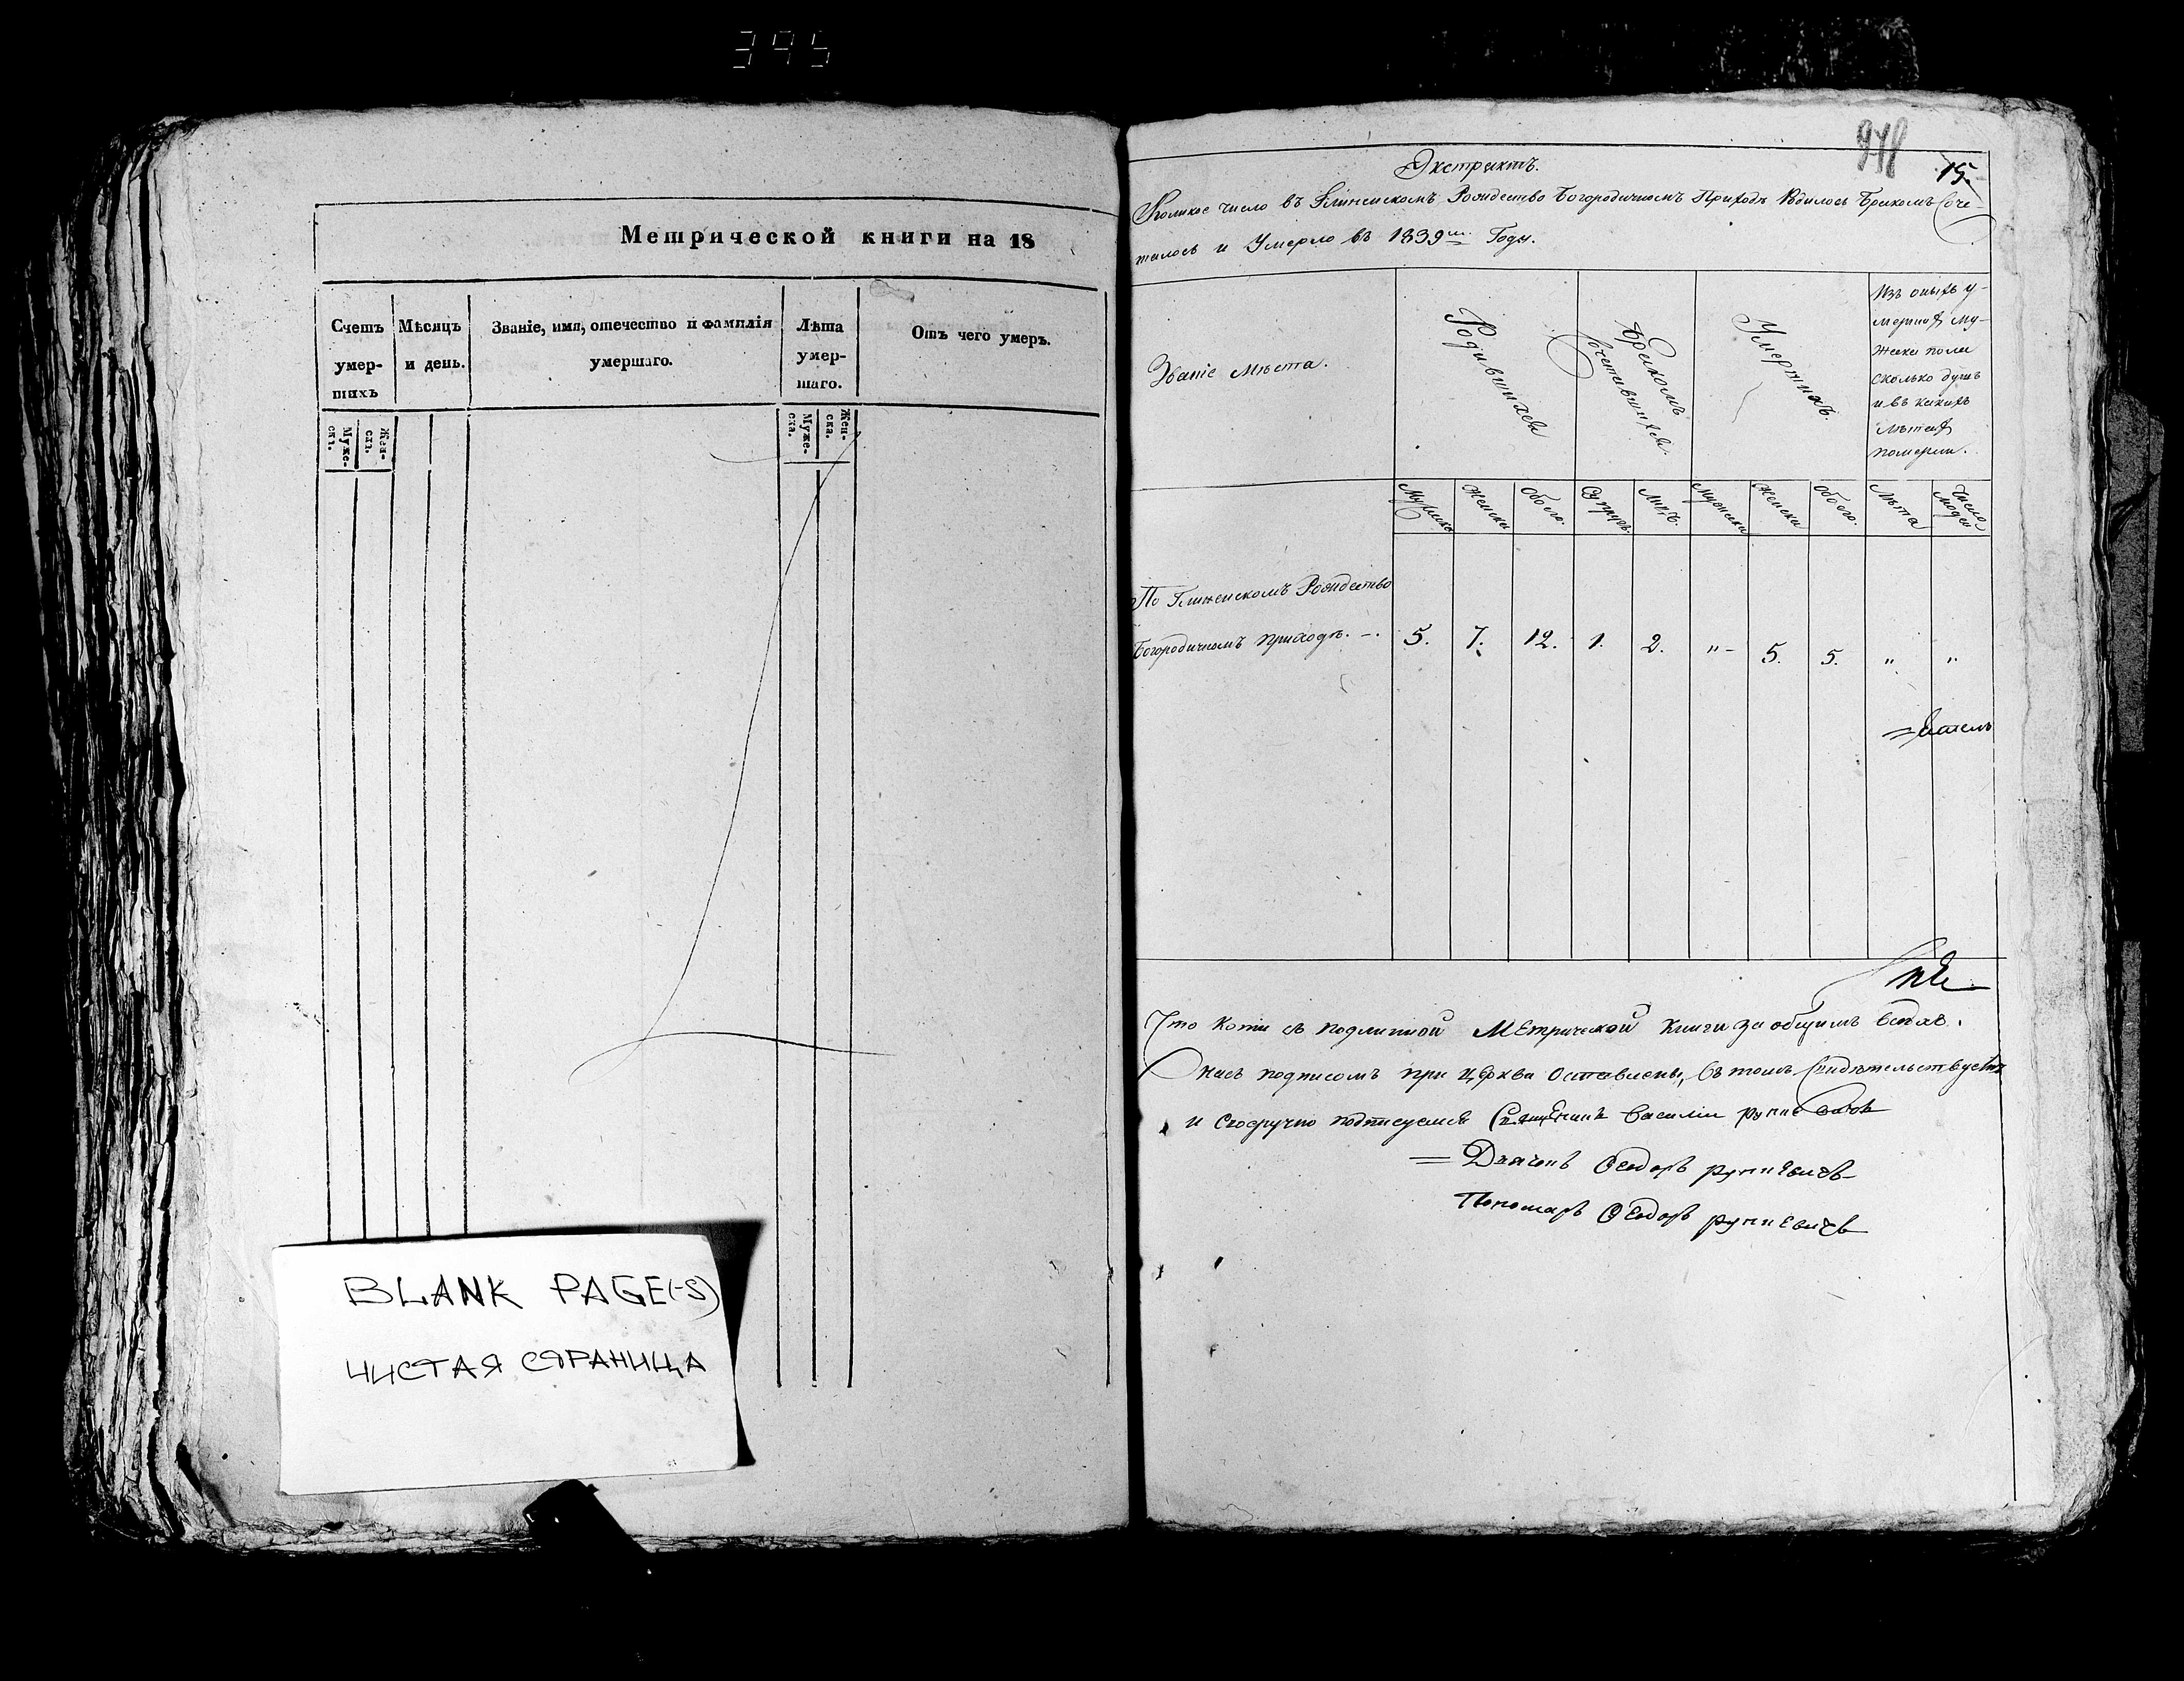 395
Метрической книги на 18
Счетъ умер- шихъ
Мѣсяцъ и день.
Званіе, имя, отечество и фамилія умершаго.
Лѣта умер- шаго.
Отъ чего умеръ.
Муже- ска.
Жен- ска.
Муже- ска.
Жен- ска.
BLANK PAGE(-S)
ЧИСТАЯ СТРАНИЦА
15.
Экстрактъ.
Коликое число въ Рождество Богородичномъ Приходѣ Бракомъ Соче-
талось и Умерло въ 1839мъ Году.
Званіе Мѣста.
Родившихся
Бракомъ Сочетавшихся.
Умершихъ.
Изъ оныхъ у-
мершихъ му-
жеска пола
сколько душъ
и въ какихъ
лѣтахъ
померли.
Мужеска
Женска
Обоего.
Супругъ.
Лицъ.
Мужеска
Женска
Обоего.
Лѣта
Число людей
По Рождество
Богородичномъ приходѣ. -. 5. 7. 12. 1. 2. "- 5. 5. " "
Что копи съ подлинной Метрической книги за общимъ всѣхъ
насъ подписомъ при Церкви Оставлены, въ томъ Свидѣтельствуемъ
и Своручно подписуемся Священникъ Василій
Дьячокъ Феодоръ
Пономарь Феодоръ